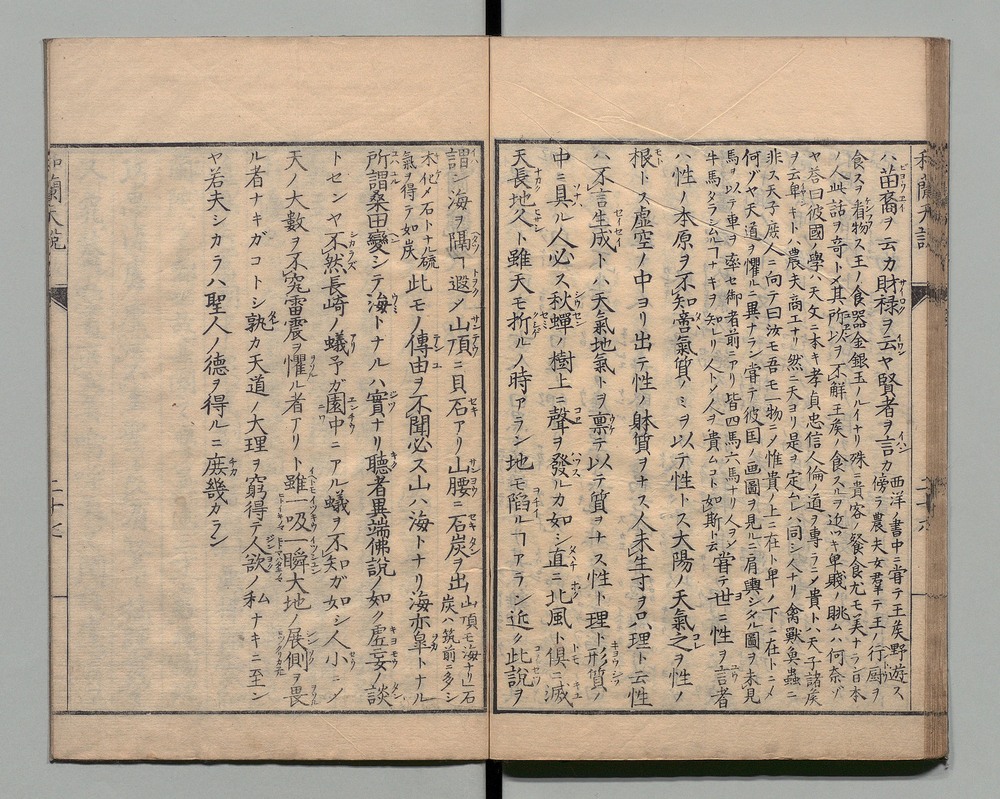 ハ苗裔ヲ云カ財禄ヲ云ヤ賢者ヲ言カ
西洋ノ書中ニ甞テ王矦野遊ス
傍ラ農夫女群テ王ノ行厨ヲ
食スヲ看物ス王ノ食器金銀玉ノルイナリ殊ニ貴客ノ餐食尤モ美ナラン日本
ノ人此話ヲ奇トメ其所以ヲ不解王矦ノ食スルヲ近ツキ卑賤ノ眺ムハ何奈ゾ
ヤ答曰彼國ノ學ハ天文ニ本キ孝貞忠信人倫ノ道ヲ專フニメ貴トハ天子諸矦
ヲ云卑キトハ農夫商工ナリ然ニ天ヨリ是ヲ定ムハ同シ人ナリ禽獸奐蟲ニ
非ス天子庶人ニ向テ曰汝モ吾モ一物ニメ惟貴ノ上ニ在ト卑ノ下ニ在トニメ
何ゾヤ天道ヲ懼ルニ異ナラン甞テ彼国ノ画圖ヲ見ルニ肩輿シタル圖ヲ未見
馬ヲ以テ車ヲ率セ御者前ニアリ皆四馬六馬ナリ人ヲメ
牛馬タラシムルヿナキヲ知レリ人トメ人ヲ貴ムコト如斯ト云
甞テ世ニ性ヲ言者
ハ性ノ本原ヲ不知啻氣質ノミヲ以テ性トス大陽ノ天氣之ヲ性ノ
根トス虚空ノ中ヨリ出テ性ノ躰質ヲナス人未生寸ヲ只理ト云性
ハ不言生成トハ天氣地氣トヲ禀テ以テ質ヲナス性ト理ト形質ノ
中ニ具ル人必ス秋蟬ノ樹上ニ聲ヲ發ルカ如シ直ニ北風ト倶ニ滅
天長地久ト雖天モ折ルノ時アラン地モ陷ルヿアラン近ク此説ヲ
謂ン海ヲ隔ヿ遐メ山頂ニ貝石アリ山腰ニ石炭ヲ出
山頂モ海ナリ石
炭ハ筑前ニ多シ
木化メ石トナル硫
氣ヲ得テ如炭
此モノ傳由ヲ不聞必ス山ハ海トナリ海亦皐トナル
所謂桑田變シテ海トナルハ實ナリ聽者異端佛說ノ如ク虚妄ノ談
トセンヤ不然長崎ノ蟻予ガ園中ニアル蟻ヲ不知ガ如シ人小ニメ
天ノ大數ヲ不究雷震ヲ懼ル者アリト雖一吸一瞬大地ノ展側ヲ畏
ル者ナキガコトシ孰カ天道ノ大理ヲ窮得テ人欲ノ私ナキニ至ン
ヤ若夫シカラハ聖人ノ德ヲ得ルニ庶幾カラン